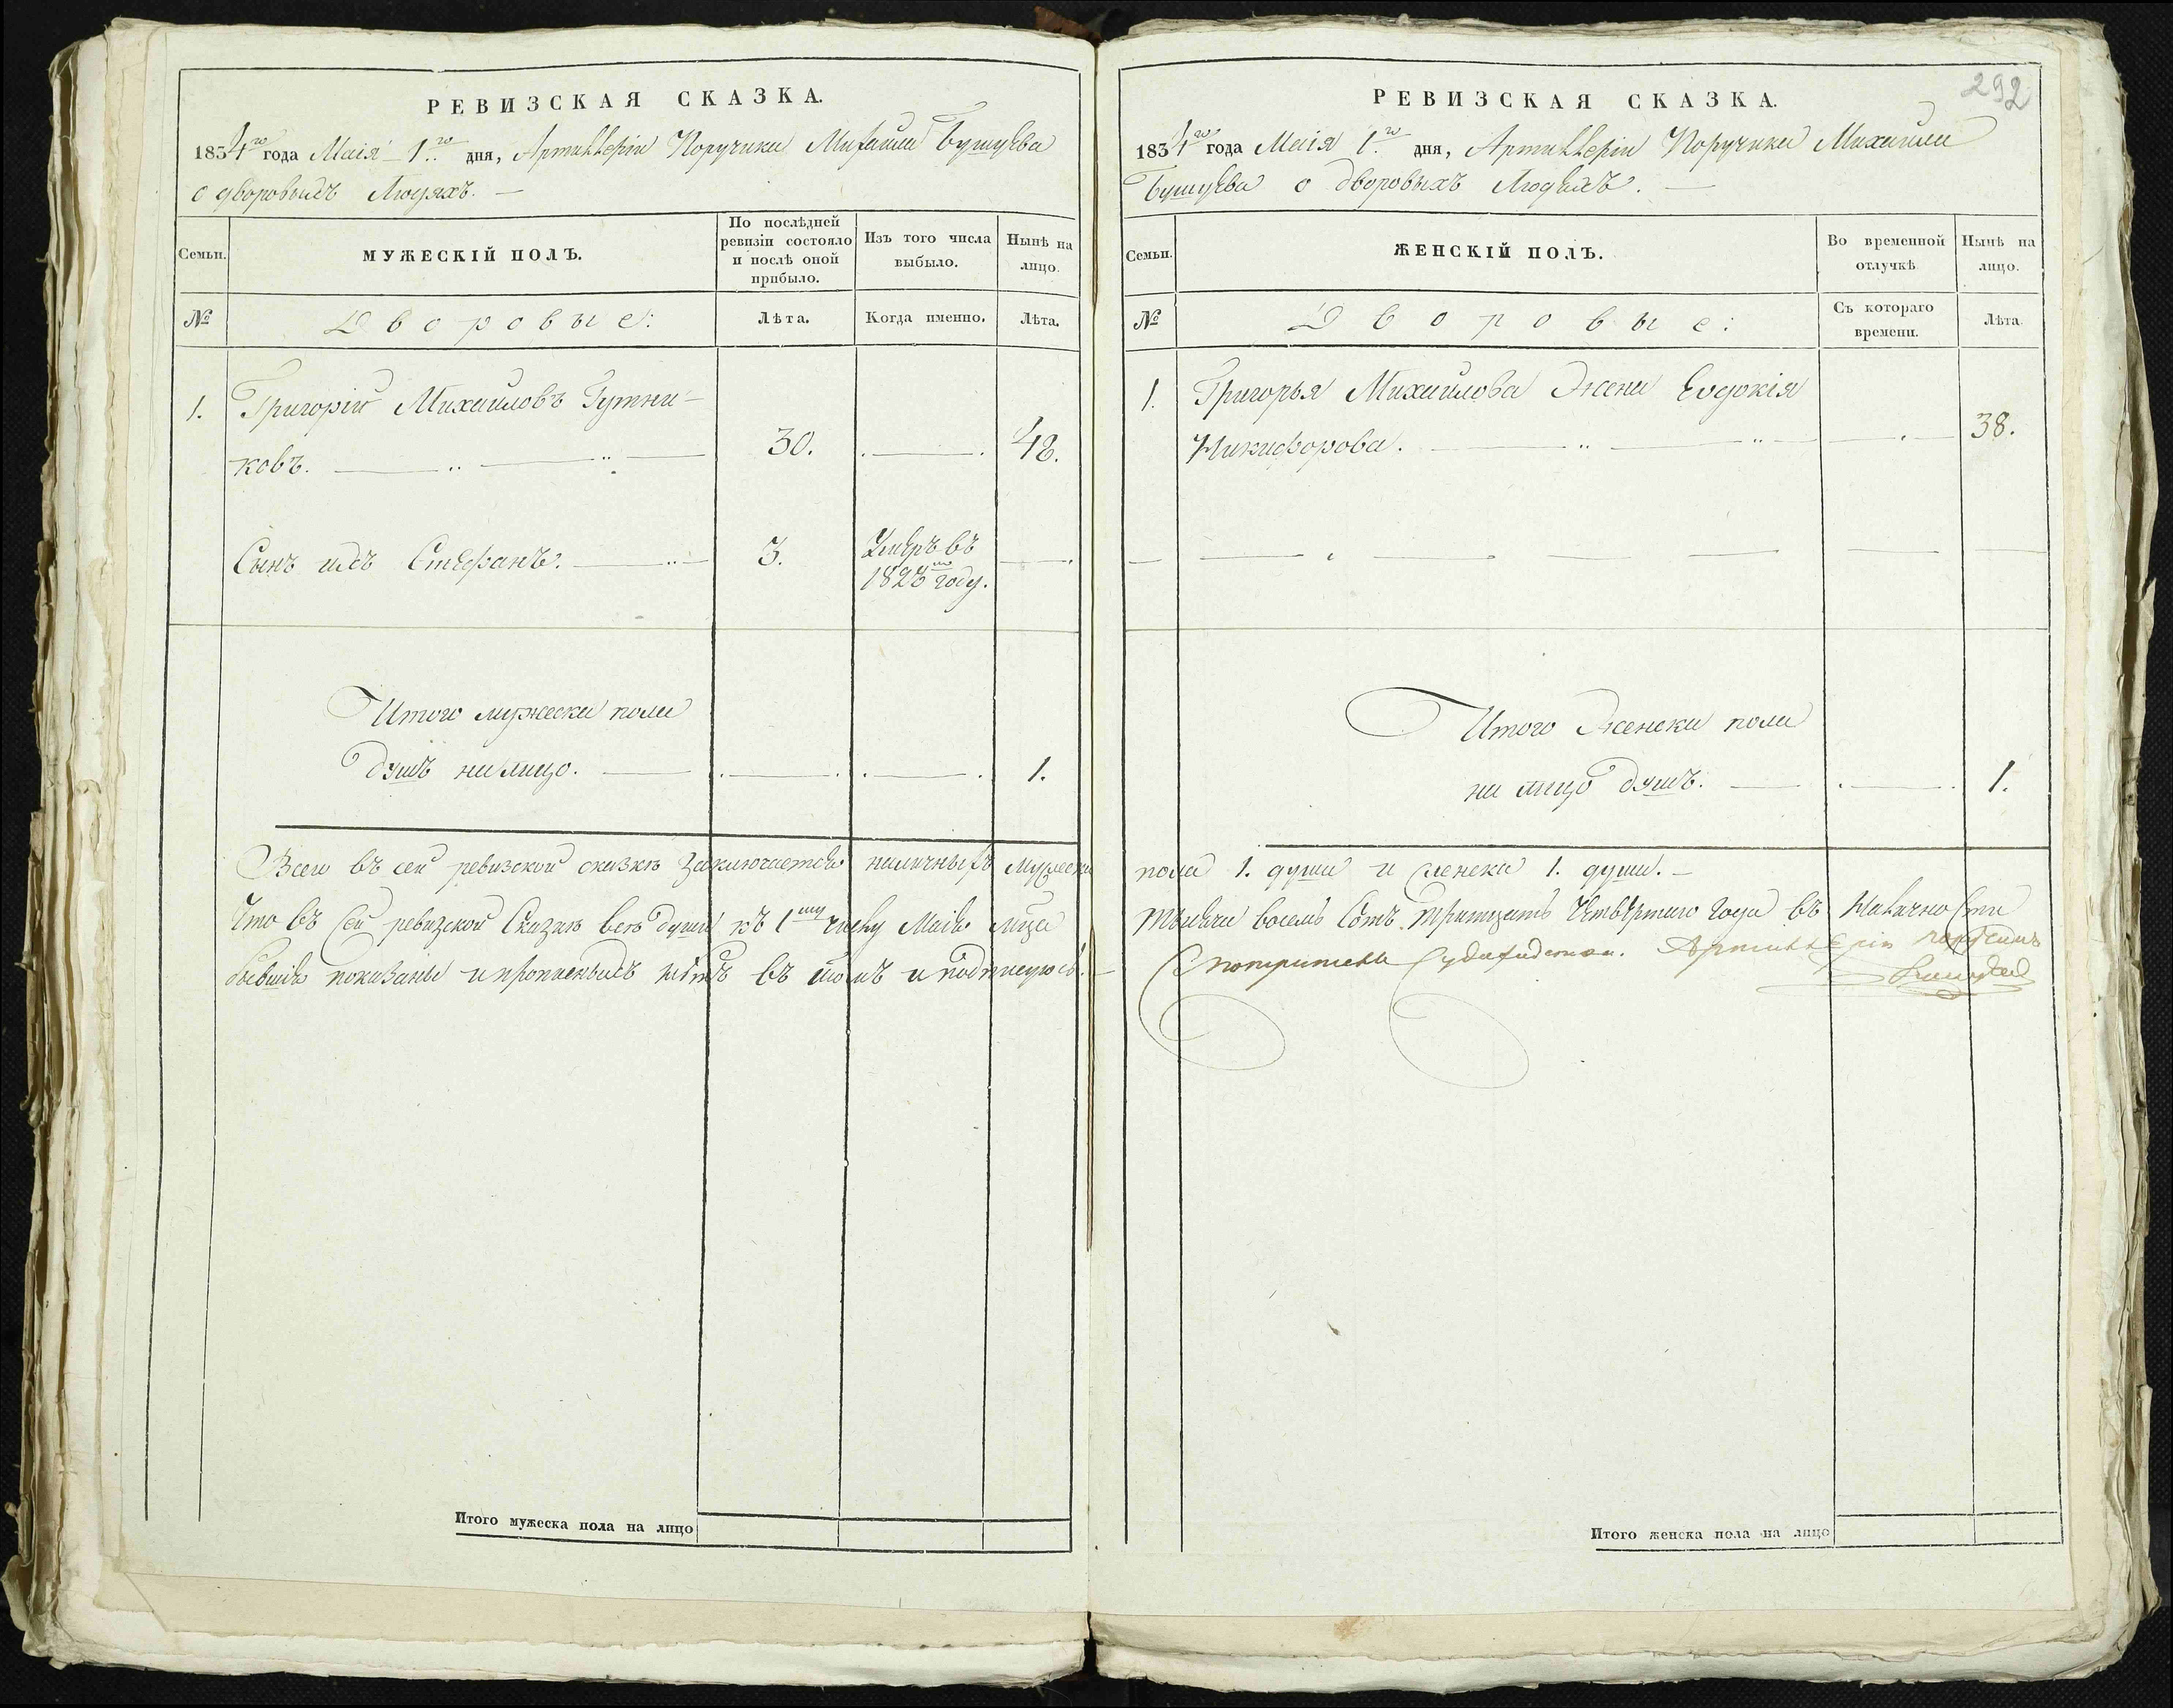 РЕВИЗСКАЯ СКАЗКА.
1834го года Маія 1го дня, Артиллеріи Поручика Михаила Бушуева
о дворовыхъ людяхъ.
Семьи.
МУЖЕСКІЙ ПОЛЪ.
По послѣдней
ревизіи состояло
и послѣ оной
прибыло.
Изъ того числа
выбыло.
Нынѣ на
лицо.
№
Дворовые:
Лѣта.
Когда именно.
Лѣта.
1. Григорій Михайловъ Гутни-
ковъ. 30. 48.
Сынъ ихъ Стефанъ. 3. Умеръ въ
1823мъ году.
Итого мужеска пола
душъ на лицо. 1.
Всего въ сей ревизской сказкѣ заключается наличныхъ мужеска
Что въ сей ревизской сказкѣ всѣ души къ 1му числу Маія мца
бывшія показаны и прописныхъ нѣтъ въ томъ и подписуюсь.
Итого мужеска пола на лицо
292
РЕВИЗСКАЯ СКАЗКА.
1834го года Маія 1го дня, Артиллеріи Поручика Михаила
Бушуева о дворовыхъ людяхъ.
Семьи.
ЖЕНСКІЙ ПОЛЪ.
Во временной
отлучкѣ
Нынѣ на
лицо.
№
Дворовые:
Съ котораго
времени.
Лѣта.
1. Григорья Михайлова жена Евдокія
Никифорова. 38.
Итого женска пола
на лицо душъ. 1.
пола 1. душа и женска 1. душа.
тысяча восемь сотъ тритцать четвертаго года въ наличности
Артиллеріи
Итого женска пола на лицо